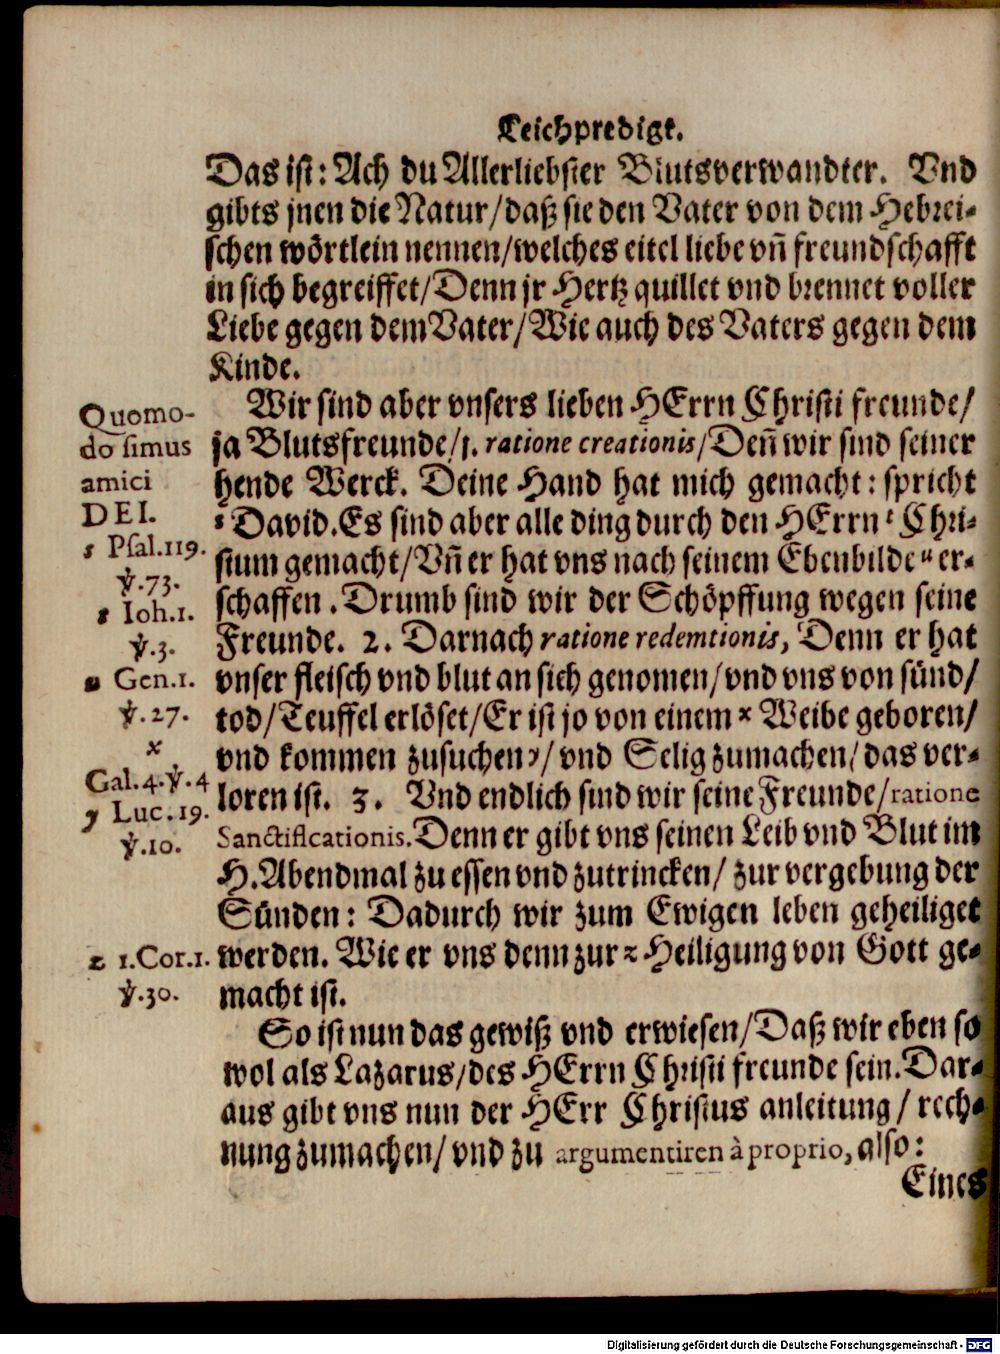 Leichpredigt.
Das ist: Ach du Allerliebster Blutsverwandter. Vnd
gibts jnen die Natur/daß sie den Vater von dem Hebrei-
schen wörtlein nennen/welches eitel liebe vñ freundschafft
in sich begreiffet/Denn jr Hertz quillet vnd brennet voller
Liebe gegen dem Vater/Wie auch des Vaters gegen dem
Kinde.
Wir sind aber vnsers lieben HErrn Christi freunde/
ja Blutsfreunde/1. ratione creationis/Deñ wir sind seiner
hende Werck. Deine Hand hat mich gemacht: spricht
s David. Es sind aber alle ding durch den HErrn t Chri-
stum gemacht/Vñ er hat vns nach seinem Ebenbilde u er-
schaffen. Drumb sind wir der Schöpffung wegen seine
Freunde. 2. Darnach ratione redemtionis, Denn er hat
vnser fleisch vnd blut an sich genomen/vnd vns von sünd/
tod/Teuffel erlöset/Er ist jo von einem x Weibe geboren/
vnd kommen zusuchen y/ vnd Selig zumachen/das ver-
loren ist. 3. Vnd endlich sind wir seine Freunde/ratione
Sanctificationis. Denn er gibt vns seinen Leib vnd Blut im
H. Abendmal zu essen vnd zutrincken/ zur vergebung der
Sünden: Dadurch wir zum Ewigen leben geheiliget
werden. Wie er vns denn zur z Heiligung von Gott ge-
macht ist.
So ist nun das gewiß vnd erwiesen/Daß wir eben so
wol als Lazarus/des HErrn Christi freunde sein. Dar-
aus gibt vns nun der HErr Christus anleitung/ rech-
nung zumachen/ vnd zu argumentiren à proprio, also:
Eines
Quomo-
do simus
amici
DEI.
s Psal.119.
℣.73.
t Ioh.1.
℣.3.
u Gen.1.
℣.27.
x
Gal.4.℣.4
y Luc.19.
℣.10.
z 1.Cor.1.
℣.30.
Digitalisierung gefördert durch die Deutsche Forschungsgemeinschaft - DFG